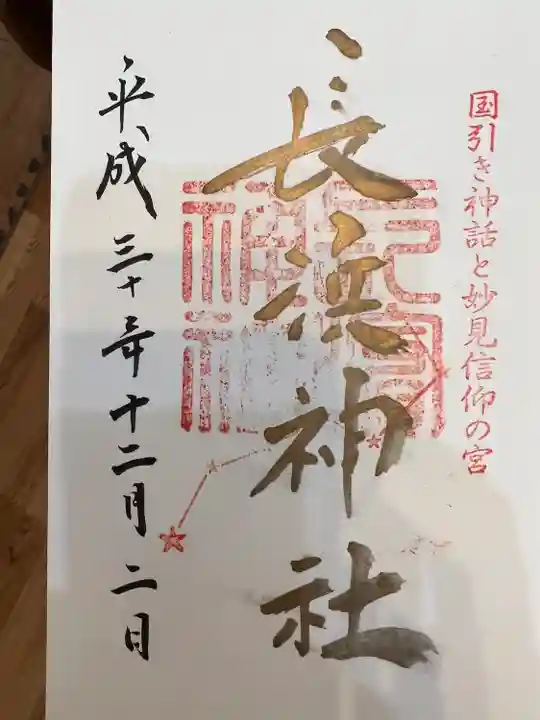 国引き神話と妙見信仰の宮
長浜神社
平成三十年十二月二日